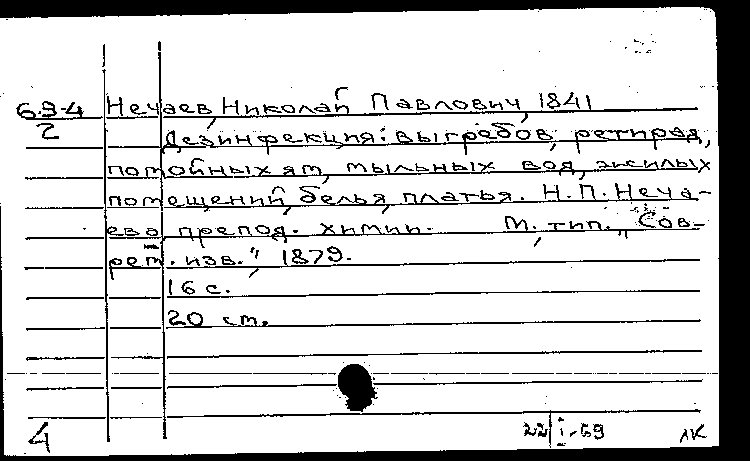 6.9-4 Нечаев, Николай Павлович, 1841
2 Дезинфекция: выгребов, ретирад,
помойных ям, мыльных вод, жилых
помещений, белья, платья. Н.П. Неча-
ева, препод. химии. М., тип. „Сов-
рем. изв.", 1879.
16 с.
20 см.
4 22/I-69 ЛК